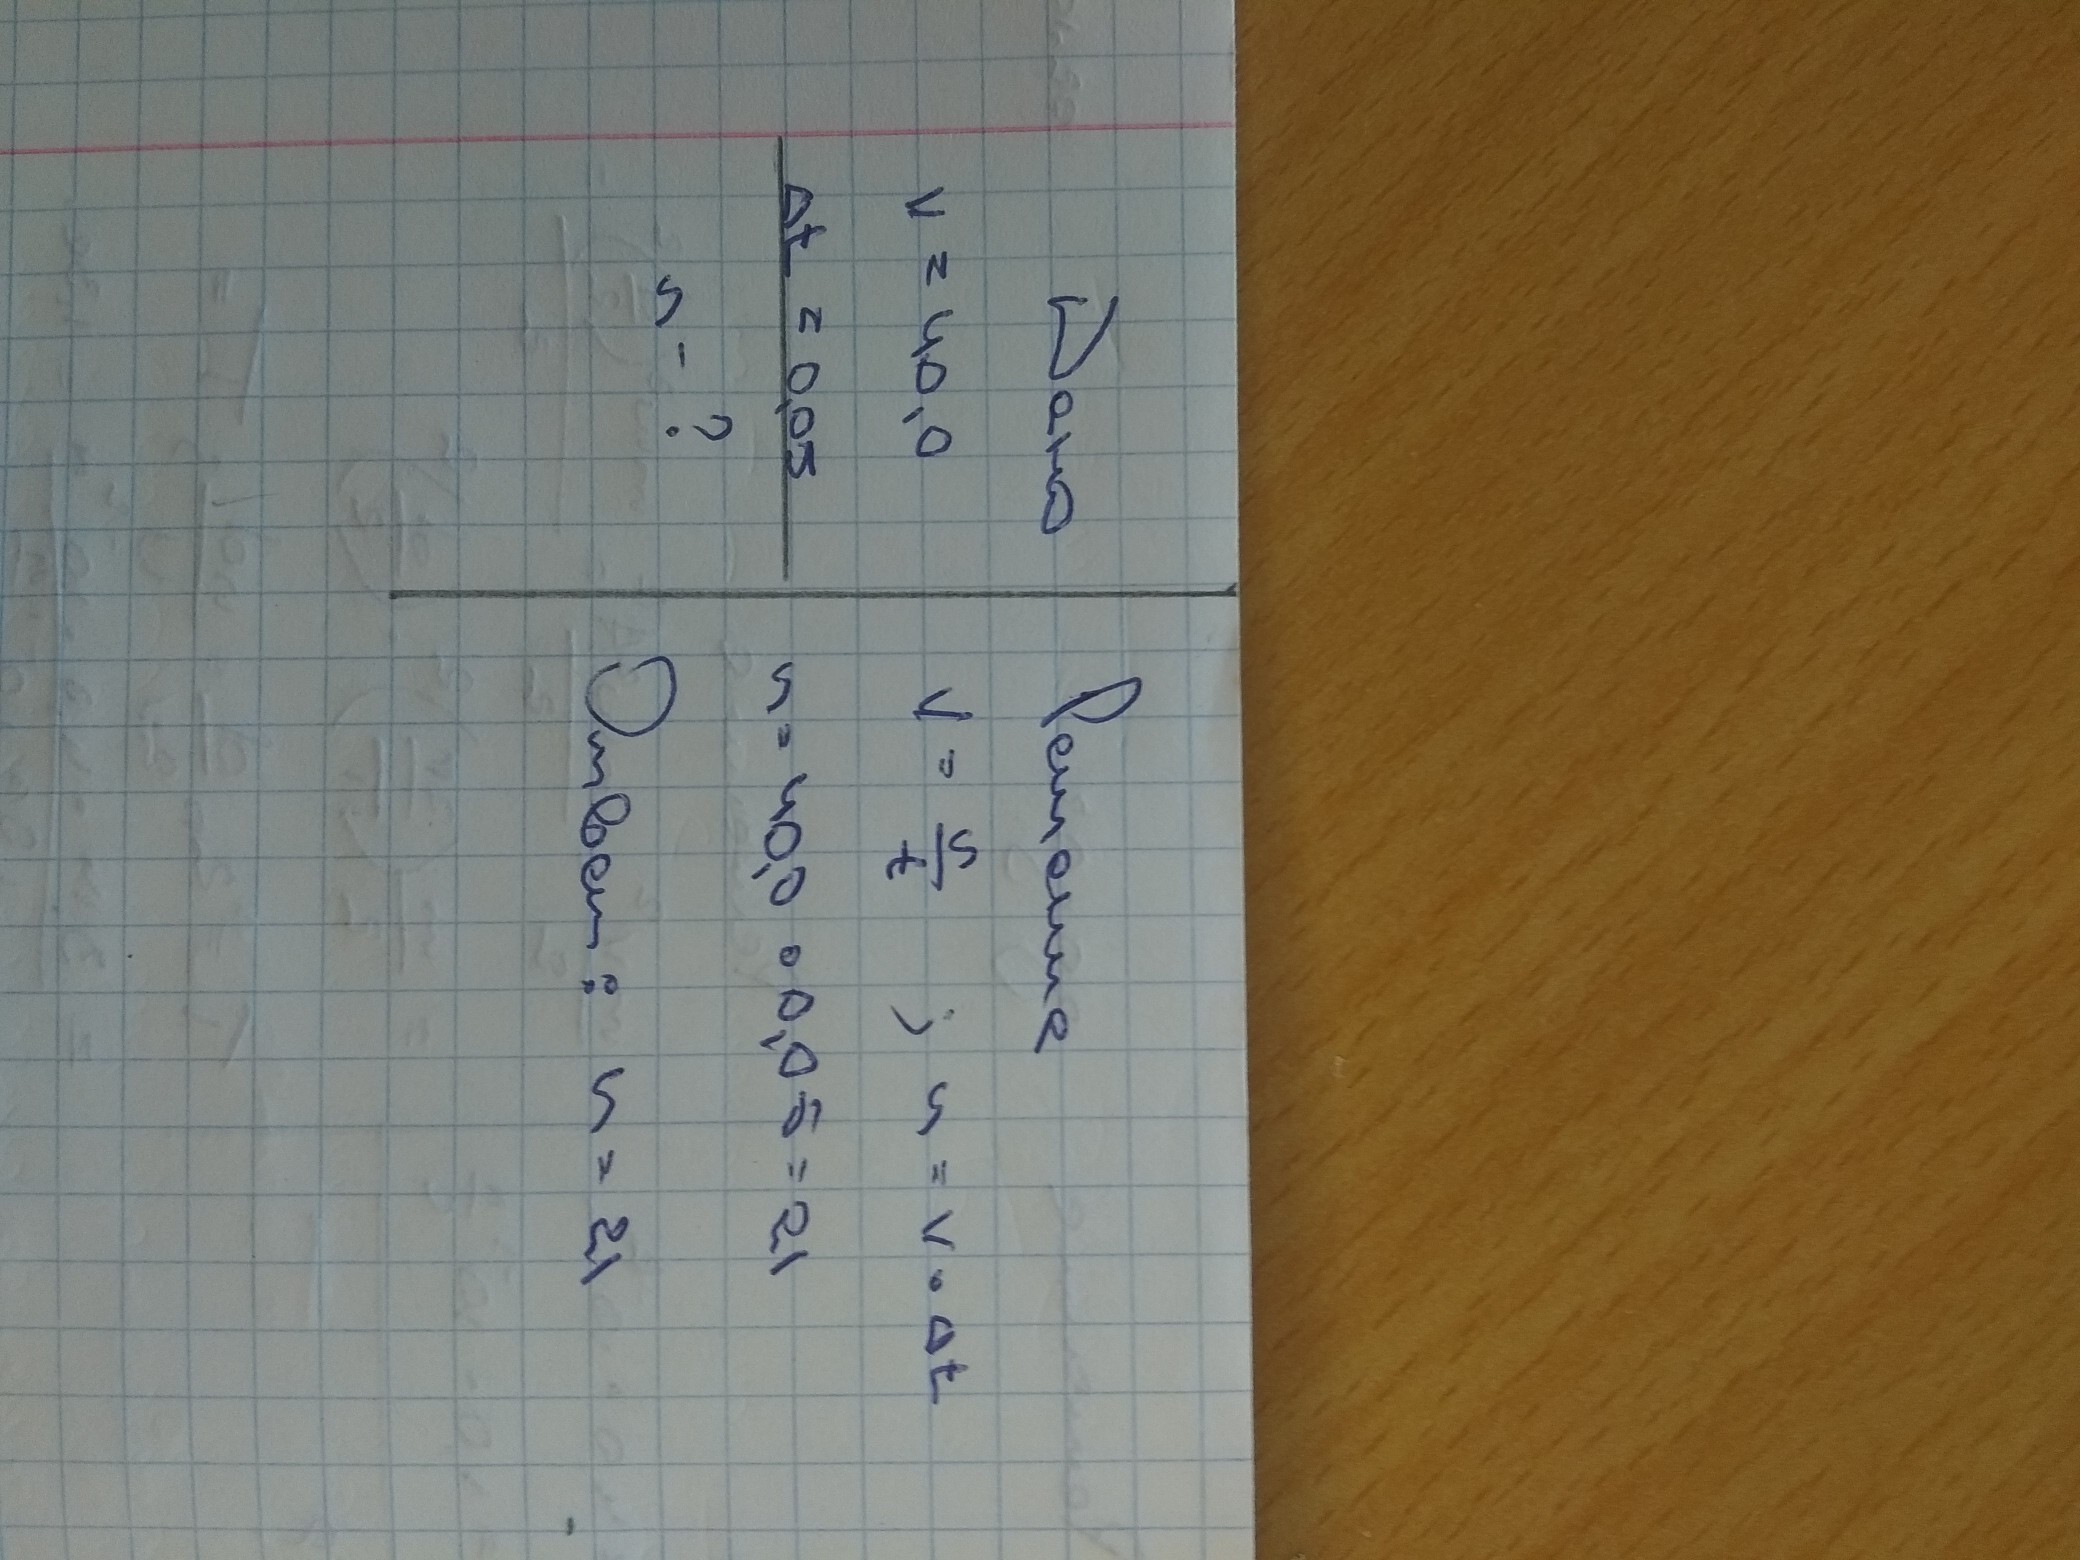 Дано
v = 40,0
Δt = 0,05
s - ?
Решение
v = s/t ; s = v · Δt
s = 40,0 · 0,05 = 21
Ответ: s = 21